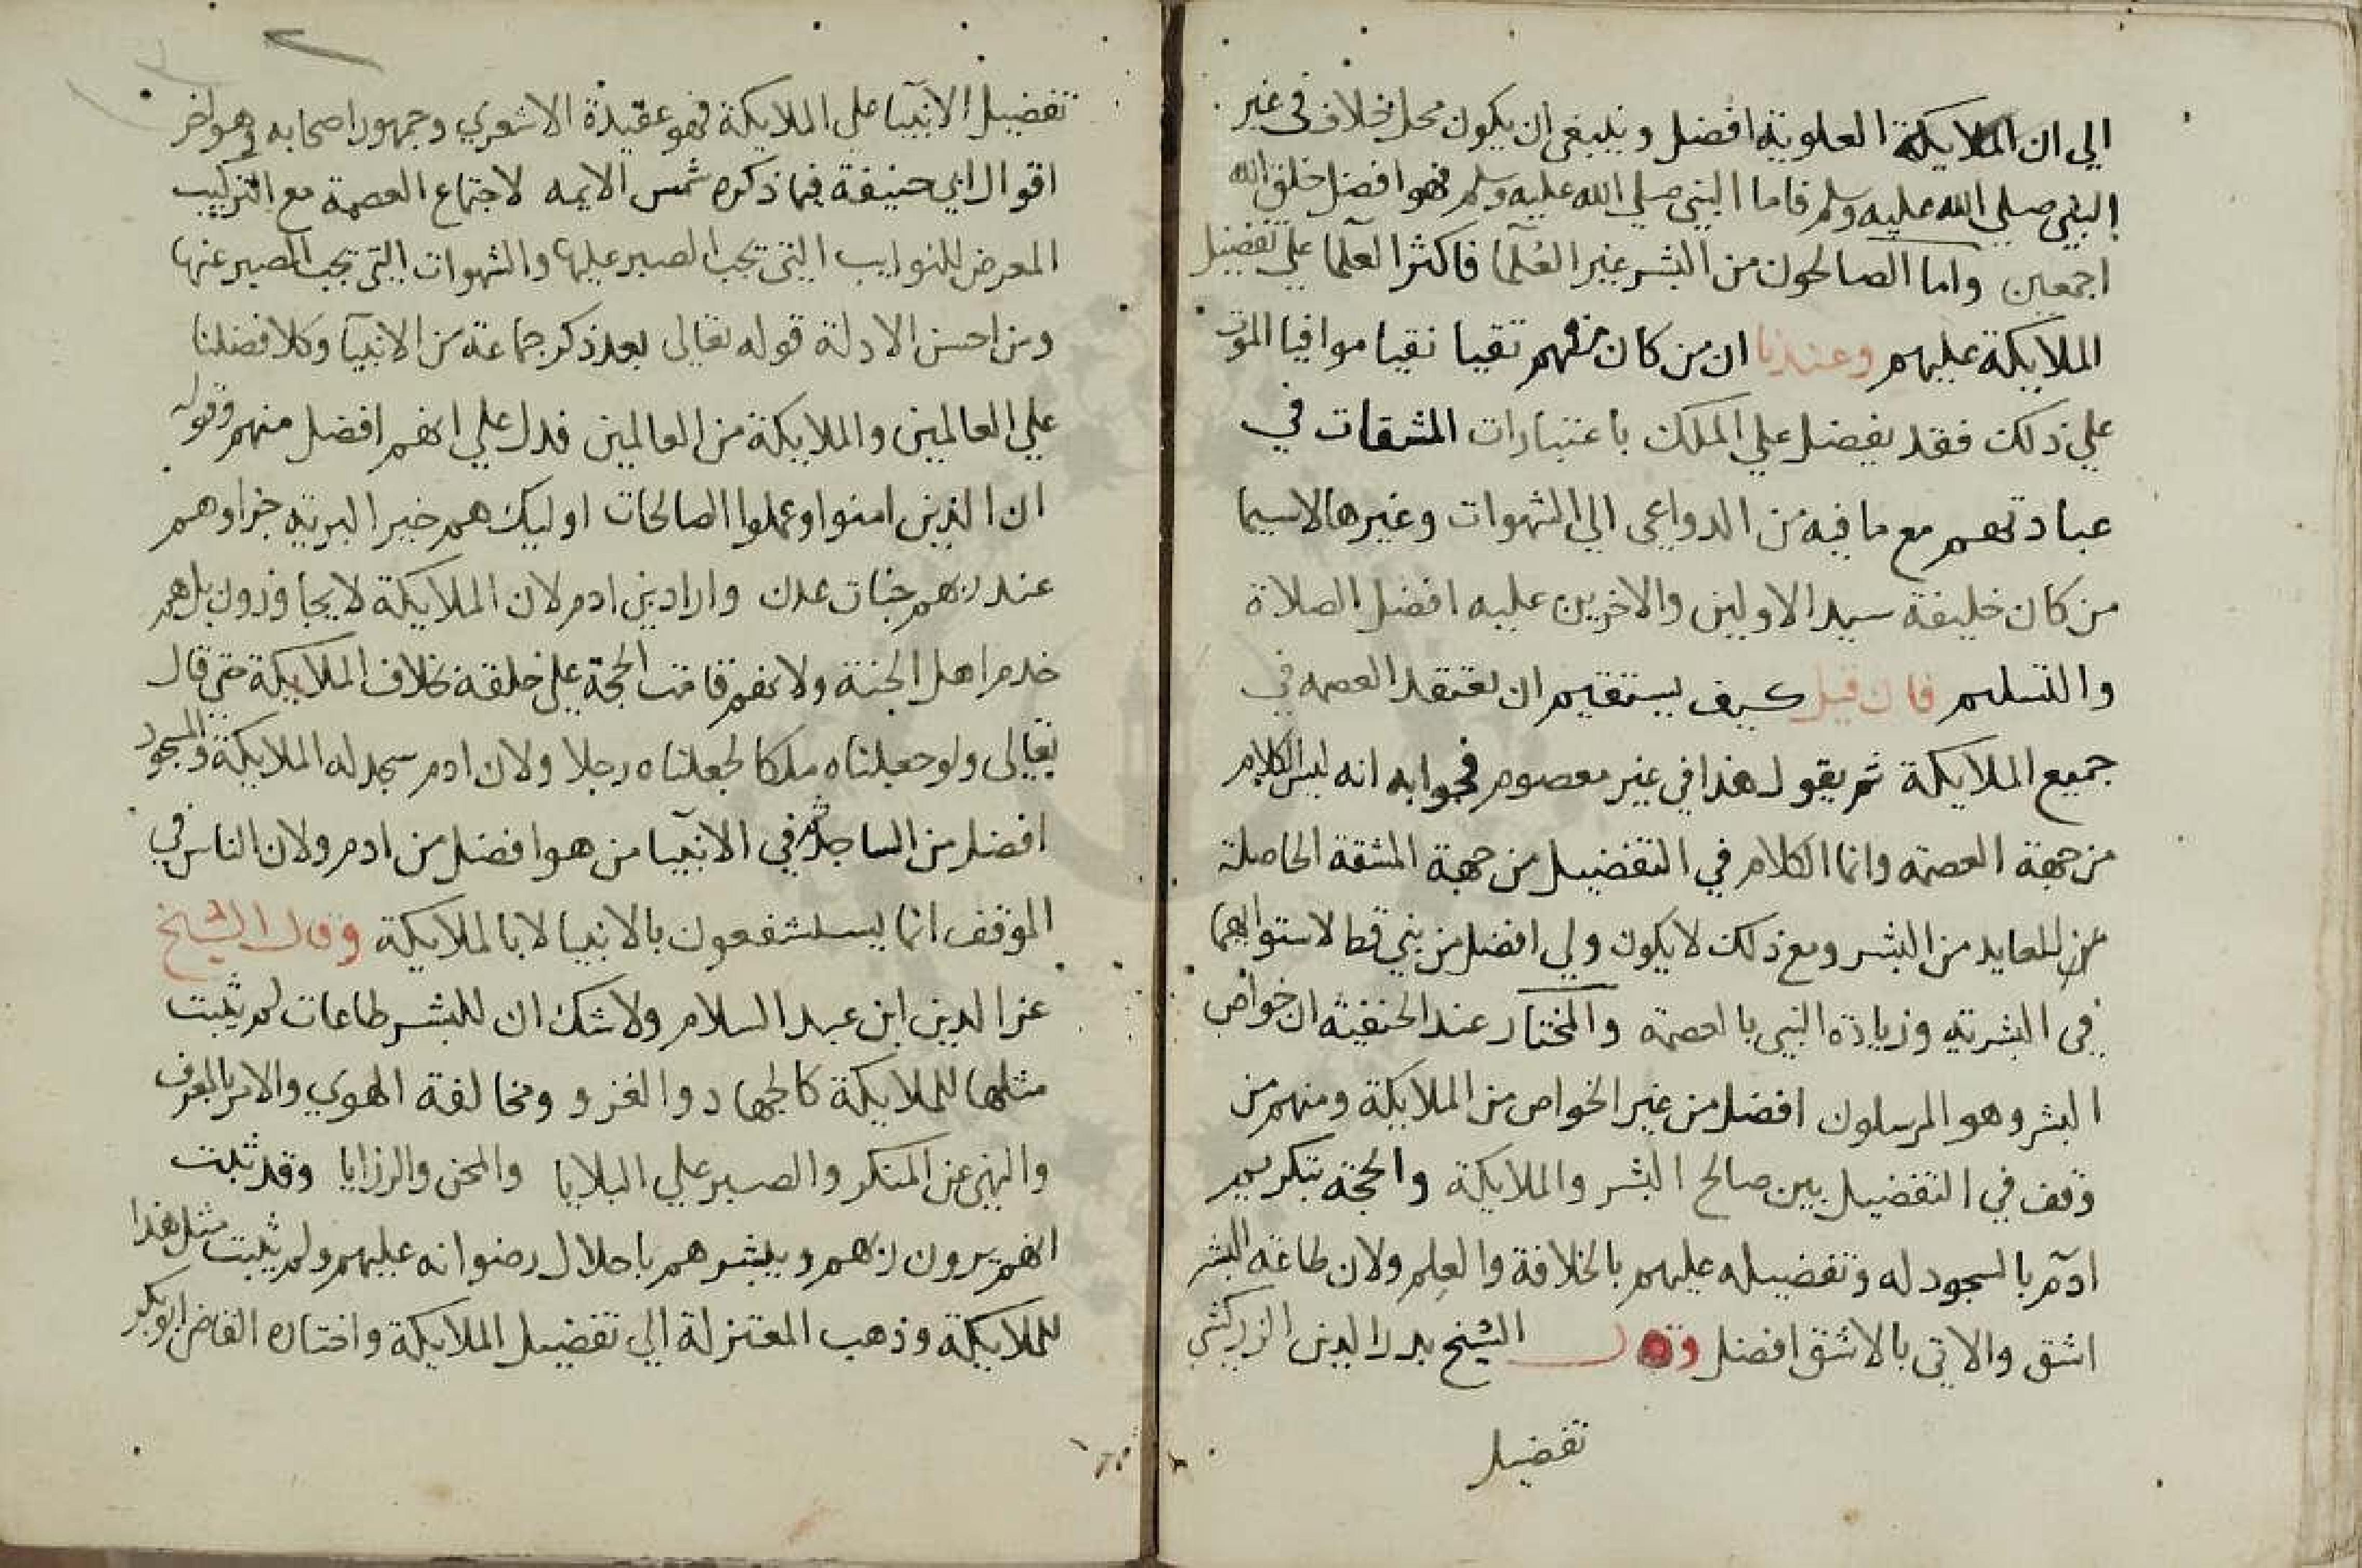 الي ان الملايكة العلوية افضل وينبغي ان يكون محل الخلاف في غير
النبي صلي الله عليه وسلم فاما النبي صلي الله عليه وسلم فهو افضل خلق الله
اجمعين واما الصالحون من البشر غير العلما فاكثر العلما علي تفضيل
الملايكة عليهم وعندنا ان من كان منهم تقيا نقيا موافيا الموت
علي ذلك فقد يفضل علي الملك باعتبارات المشقات في
عبادتهم مع ما فيه من الدواعي الي الشهوات وغيرها لاسيما
من كان خليفة سيد الاولين والاخرين عليه افضل الصلاة
والتسليم فان قيل كيف يستقيم ان تعتقد العصمه في
جميع الملايكة ثم يقول هذا في غير معصوم فجوابه انه ليس الكلام
من جهة العصمة وانما الكلام في التفضيل من جهة المشقة الحاصلة
للعابد من البشر ومع ذلك لا يكون ولي افضل من نبي قط لاستوايهما
في البشرية وزيادة النبي بالعصمة والمختار عند الحنفية ان خواص
البشر وهو المرسلون افضل من غير الخواص من الملايكة ومنهم من
وقف في التفضيل بين صالح البشر والملايكة والحجة بتكريم
ادم بالسجود له وتفضيله عليهم بالخلافة والعلم ولان طاعة البشر
اشق والاتي بالاشق افضل وقال الشيخ بدر الدين الزركشي
تفضيل
تفضيل الانبيا علي الملايكة فهو عقيدة الاشعري وجمهور اصحابه وهو اخر
اقوال ابي حنيفة فيما ذكره شمس الايمه لاجتماع العصمة مع التركيب
المعرض للنوايب التي تجب الصبر عليها والشهوات التي تجب الصبر عنها
ومن احسن الادلة قوله تعالي بعد ذكر جماعة من الانبيا وكلا فضلنا
علي العالمين والملايكة من العالمين فدل علي انهم افضل منهم وقوله
ان الذين امنوا وعملوا الصالحات اوليك هم خير البرية جزاوهم
عند ربهم جنات عدن واراد بني ادم لان الملايكة لا يجاوزون بل هم
خدم اهل الجنة ولانهم قامت الحجة علي خلقه بخلاف الملايكة حتي قال
تعالي ولو جعلناه ملكا لجعلناه رجلا ولان ادم سجد له الملايكة والمسجود
افضل من الساجد ثم في الانبيا من هو افضل من ادم ولان الناس في
الموقف انما يستشفعون بالانبيا لا بالملايكة وقال الشيخ
عز الدين ابن عبد السلام ولا شك ان للبشر طاعات لم يثبت
مثلها للملايكة كالجهاد والغزو ومخالفة الهوي والامر بالمعروف
والنهي عن المنكر والصبر علي البلايا والمحن والرزايا وقد ثبت
انهم يرون ربهم ويبشرهم باحلال رضوانه عليهم ولم يثبت مثل هذا
للملايكة وذهب المعتزلة الي تفضيل الملايكة واختاره القاضي ابو بكر